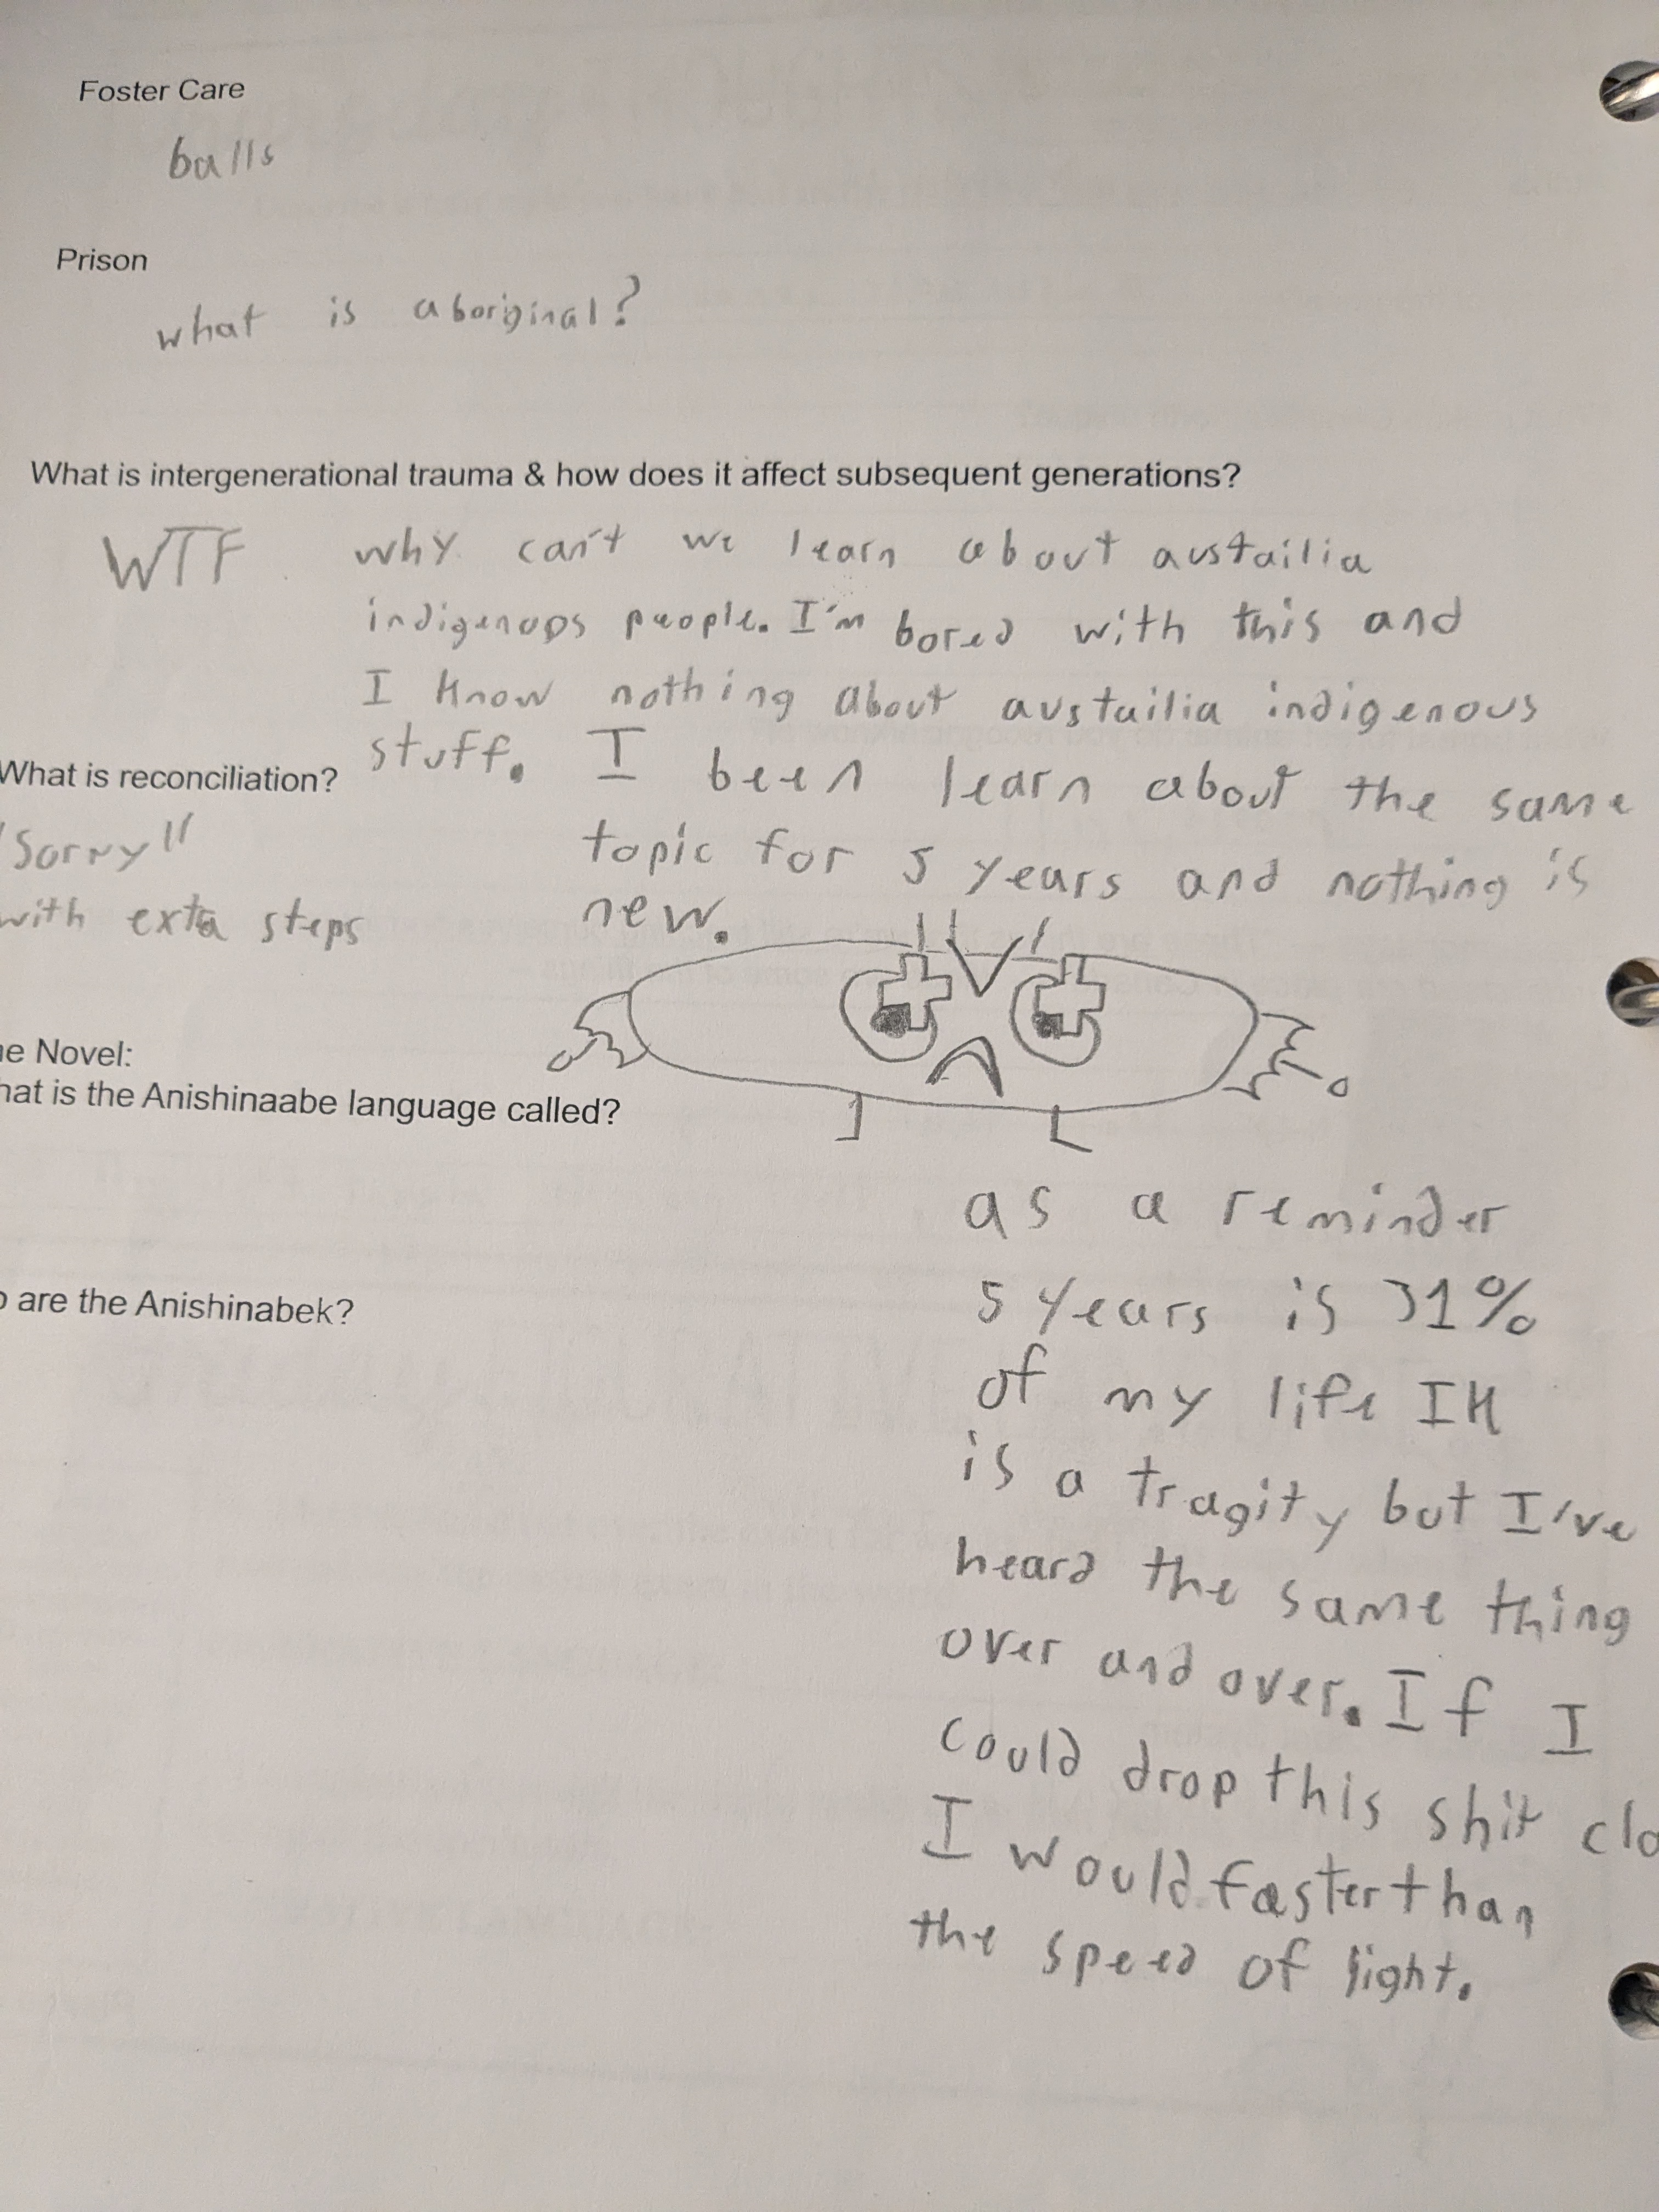 Foster Care
balls
Prison
what is aboriginal?
What is intergenerational trauma & how does it affect subsequent generations?
WTF why can't we learn about austailia
indigenous people. I'm bored with this and
I know nothing about austailia indigenous
stuff. I been learn about the same
topic for 5 years and nothing is
new.
What is reconciliation?
"Sorry"
with exta steps
Novel:
is the Anishinaabe language called?
are the Anishinabek?
as a reminder
5 years is 31%
of my life IK
is a tragity but I've
heard the same thing
over and over. If I
could drop this shit
I would faster than
the speed of light.